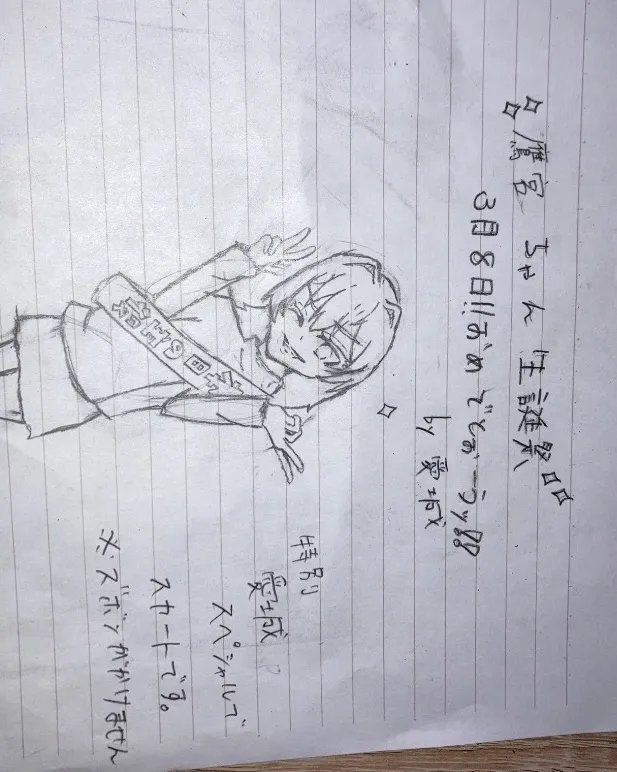 鷹宮 ちゃん 生誕祭
3月8日!!おめでとおーうッ
by 愛城
本日の主役
特別
愛城
スペシャルで
スカートです。
※ズボンがかけません